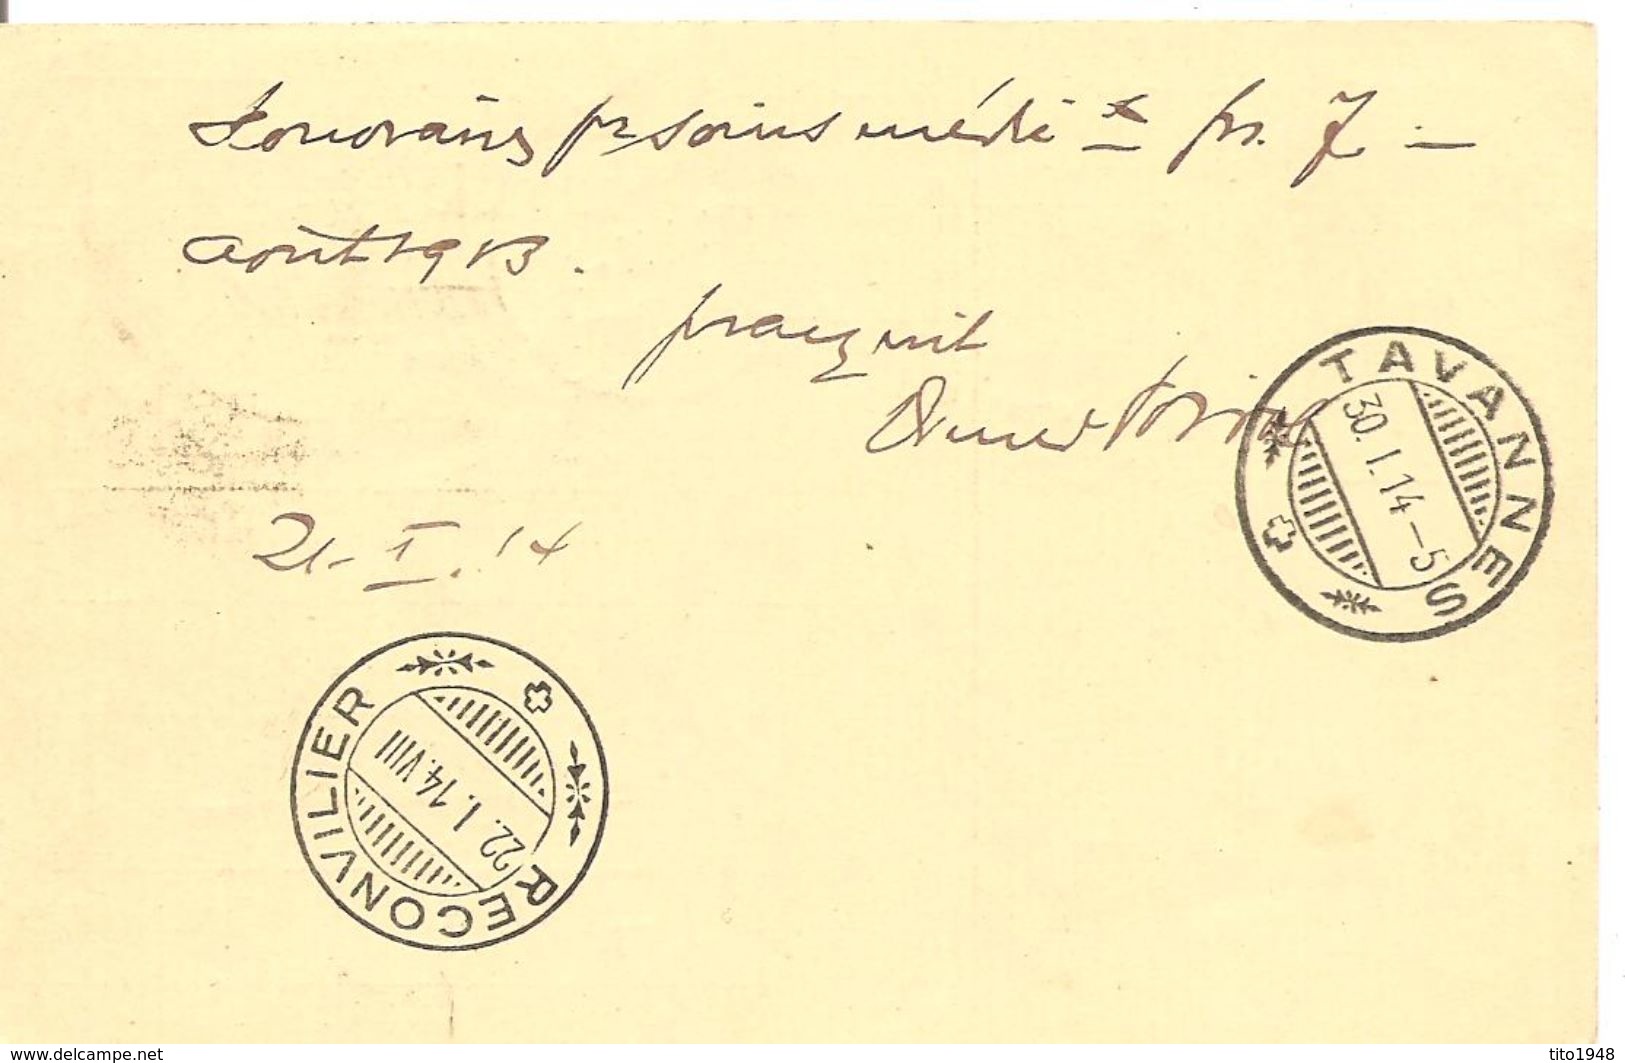 Honoraires pr soins médic x fr. 7. —
août 1913.
pr acquit
TAVANNES
30. I. 14 — 5
21. I. 14
RECONVILIER
22. I. 14. VIII
www.delcampe.net
tito1948